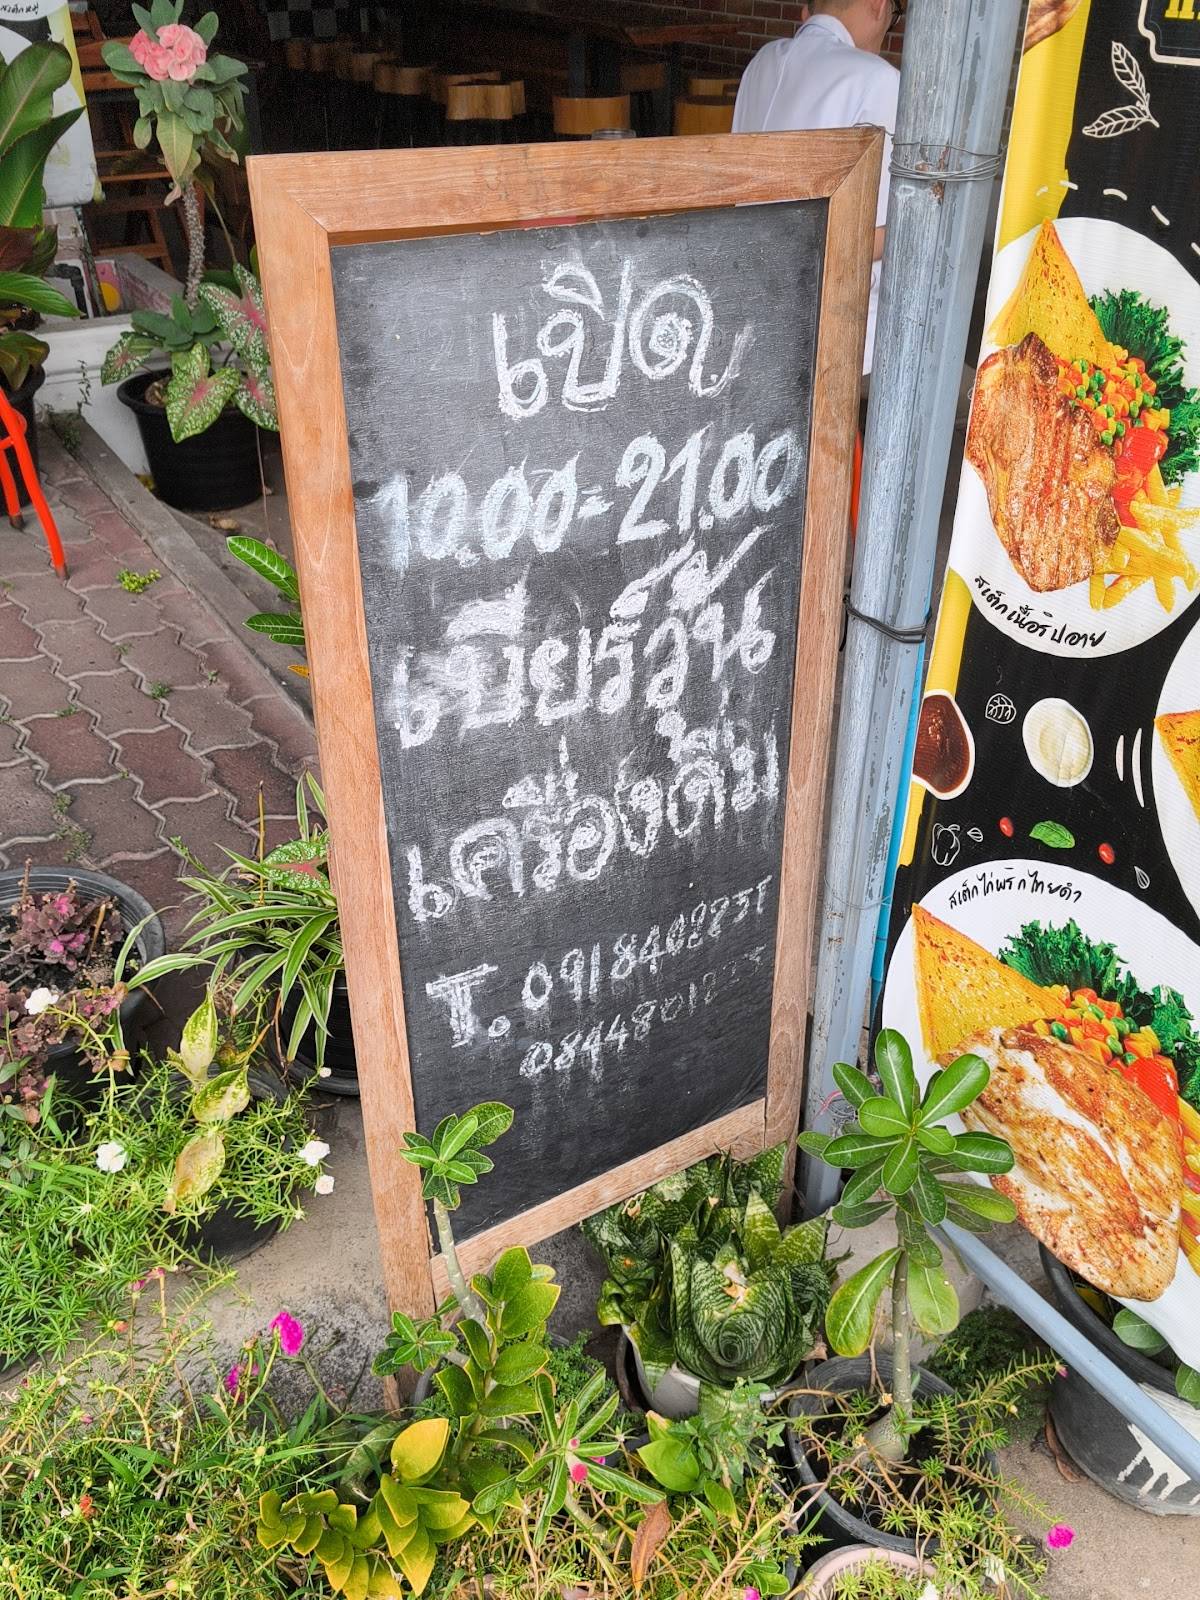 เปิด
10.00-21.00
เบียร์วุ้น
เครื่องดื่ม
T. 0918402231
0844801223
สเต็กเนื้อริปอาย
สเต็กไก่พริกไทยดำ